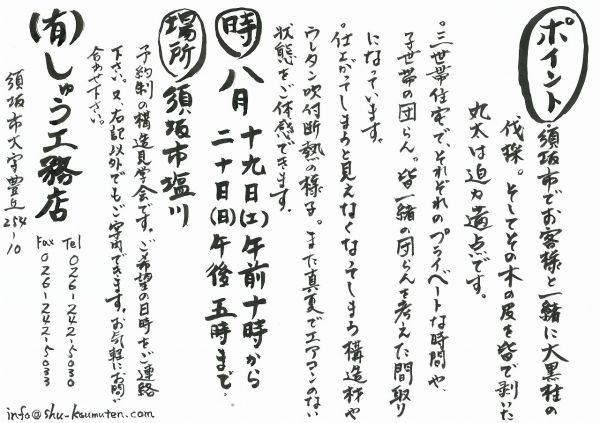 ポイント
・須坂市でお客様と一緒に大黒柱の
伐採。そしてその木の皮を皆で剥いた
丸太は迫力満点です。
・三世帯住宅で、それぞれのプライベートな時間や、
子世帯の団らん。皆一緒の団らんを考えた間取り
になっています。
・仕上がってしまうと見えなくなってしまう構造材や
ウレタン吹付断熱の様子。また真夏でエアコンのない
状態をご体感できます。
時 八月 十九日(土)午前十時から
二十日(日)午後五時まで。
場所 須坂市塩川
予約制の構造見学会です。ご希望の日時をご連絡
下さい。又、右記以外でもご案内できます。お気軽にお問い
合わせ下さい。
(有)しゅう工務店
Tel 026-242-5030
Fax 026-242-5033
須坂市大字豊丘254-10
info@shu-koumuten.com